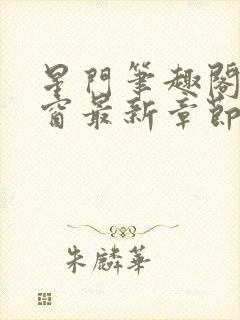 星門筆趣閣
窗最新章節
朱麟華